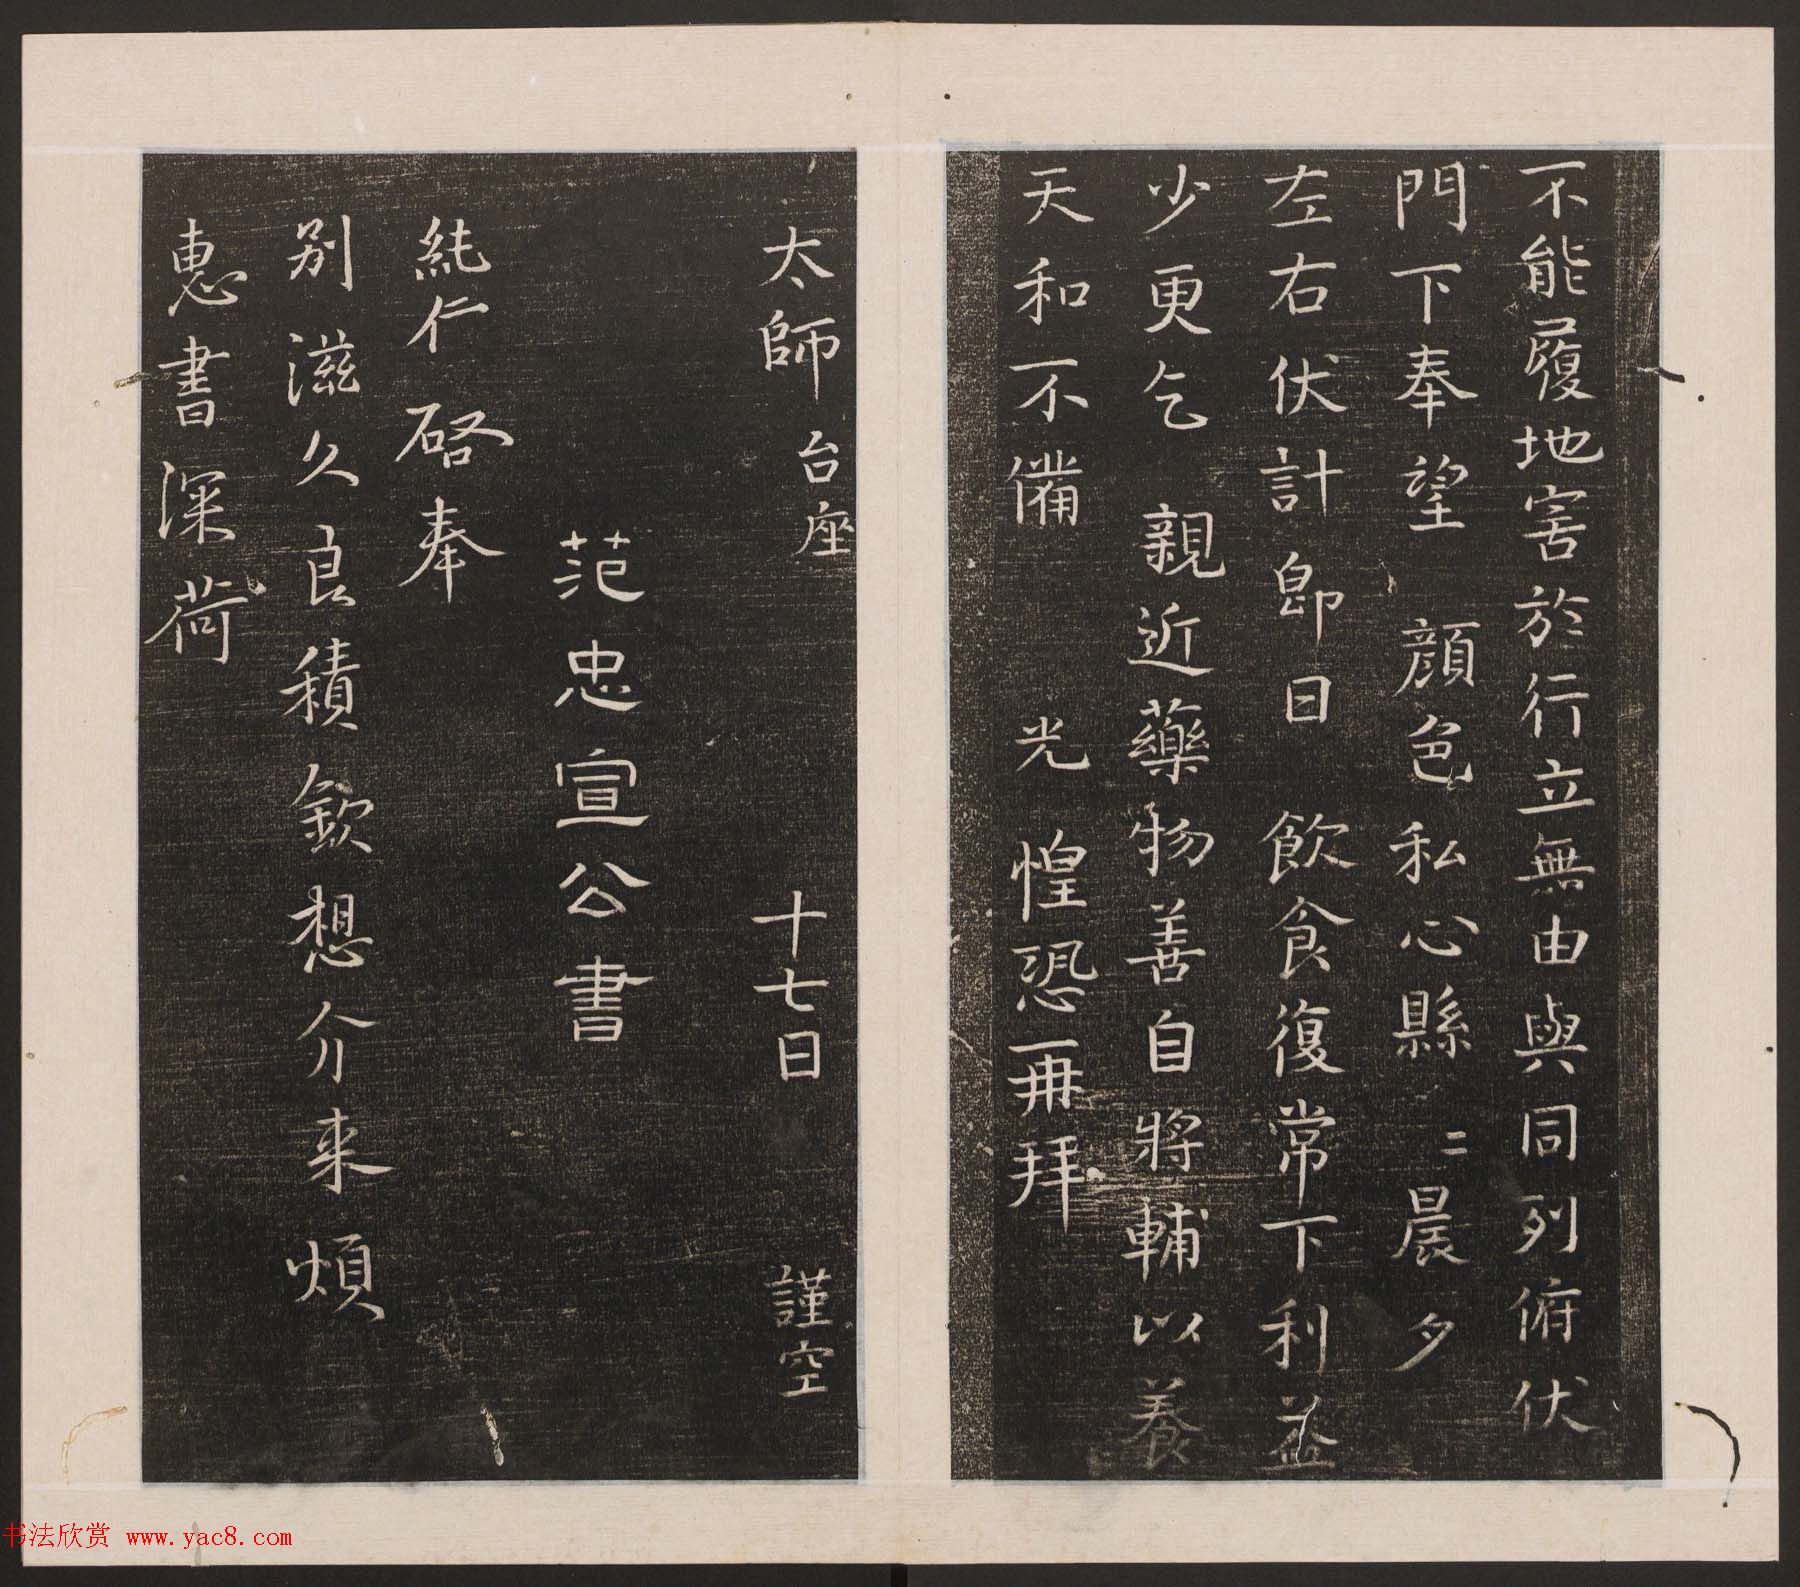 不能履地害於行立無由與同列俯伏
門下奉望 顏色私心縣二晨夕
左右伏計即日 飲食復常下利益
少更乞 親近藥物善自將輔以養
天和不備 光 惶恐再拜
太師台座 十七日 謹空
范忠宣公書
純仁啓奉
別滋久良積欽想介來煩
惠書深荷
书法欣赏 www.yac8.com